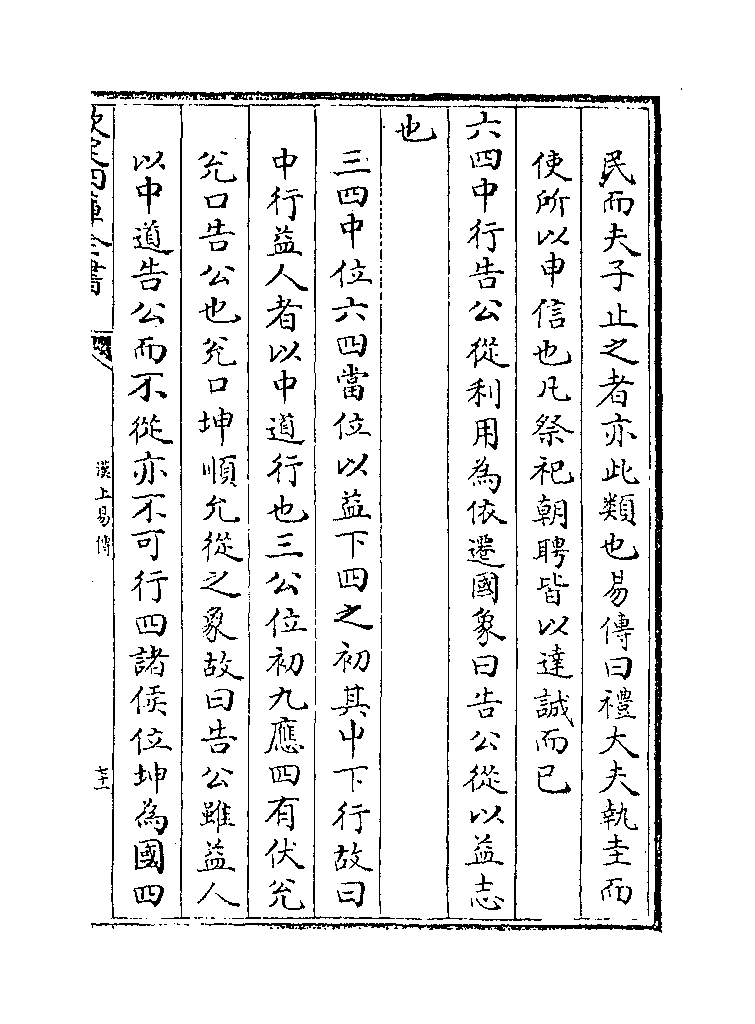 民而夫子止之者亦此類也易傳曰禮大夫執圭而
使所以申信也凡祭祀朝聘皆以達誠而已
六四中行告公從利用為依遷國象曰告公從以益志
也
三四中位六四當位以益下四之初其中下行故曰
中行益人者以中道行也三公位初九應四有伏兊
兊口告公也兊口坤順允從之象故曰告公雖益人
以中道告公而不從亦不可行四諸侯位坤為國四
欽定四庫全書
漢上易傳